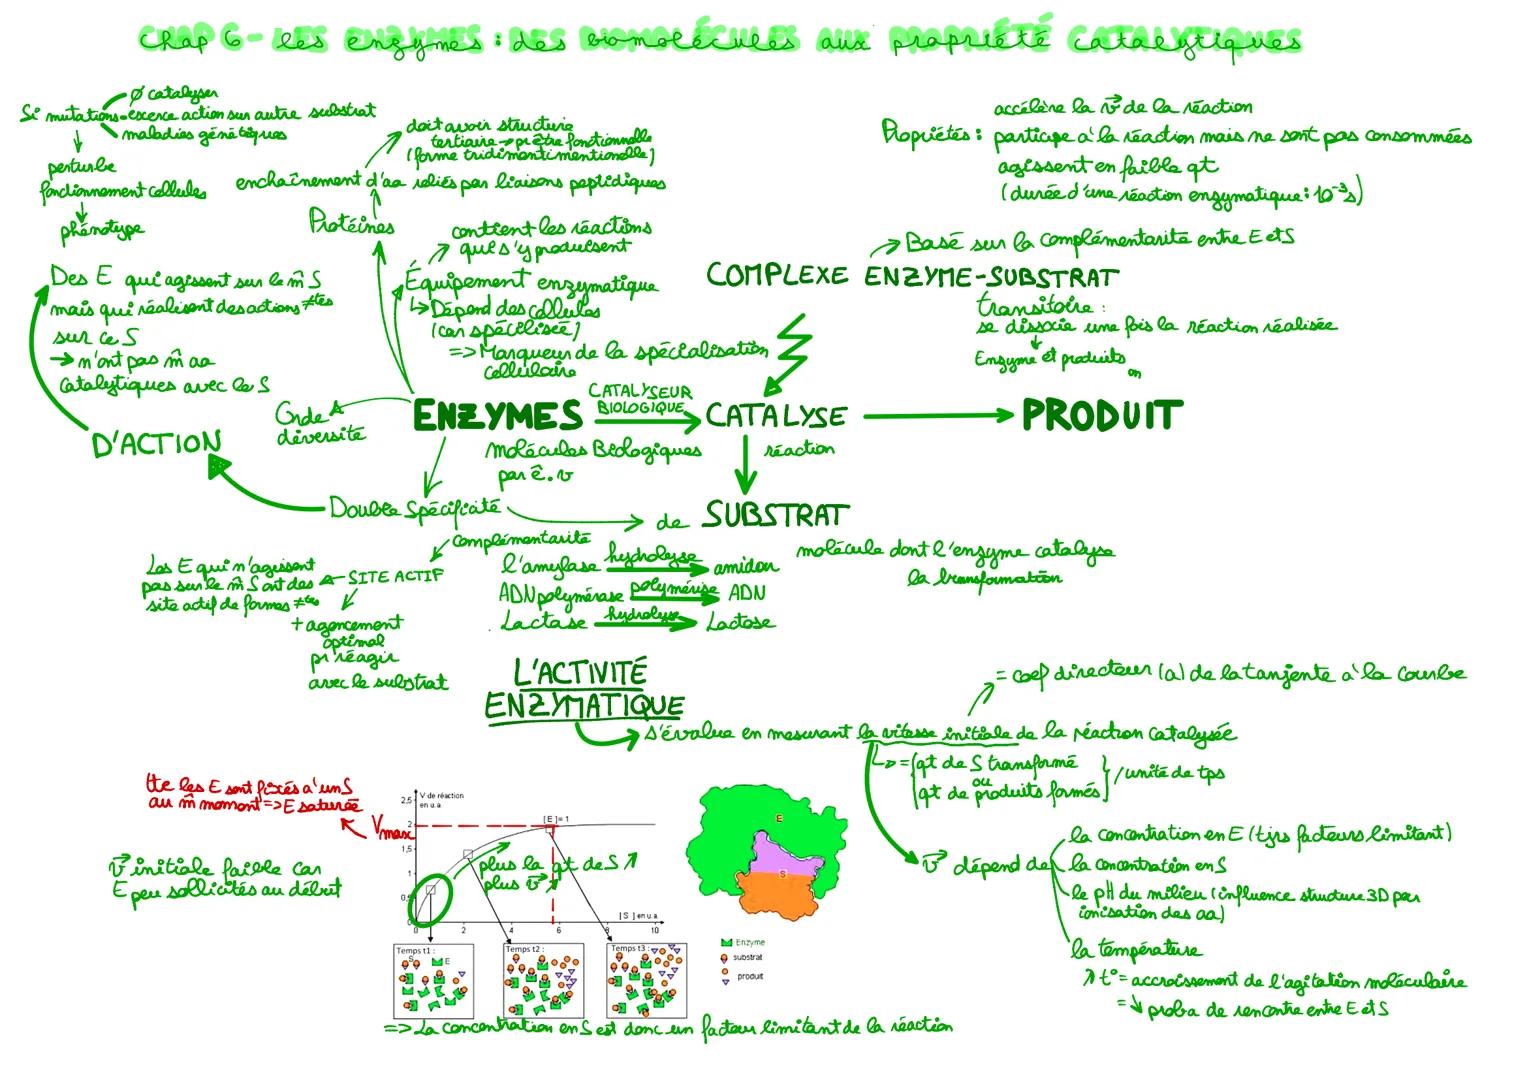 Chap 6 - les enzymes : des biomolécules aux propriété catalytiques
Si mutations
Ø catalyser
exerce action sur autre substrat
maladies génétiques
perturbe
fonctionnement cellules
phénotype
doit avoir structure
tertiaire → pr être fonctionnelle
(forme tridimentimentionelle)
enchaînement d'aa reliés par liaisons peptidiques
Protéines
contient les réactions
qui s'y produisent
Équipement enzymatique
↳ Dépend des cellules
(car spécilisée)
=> Marqueur de la spécialisation
cellulaire
Propriétés :
accélère la v de la réaction
participe à la réaction mais ne sont pas consommées
agissent en faible qt
(durée d'une réaction enzymatique : 10⁻³s)
→ Basé sur la complémentarité entre E et S
COMPLEXE ENZYME-SUBSTRAT
transitoire :
se dissocie une fois la réaction réalisée
Enzyme et produits
on
Des E qui agissent sur le m̂ S
mais qui réalisent des actions ≠tes
sur ce S
→ n'ont pas m̂ aa
catalytiques avec le S
D'ACTION
Grde
diversité
ENZYMES
CATALYSEUR
BIOLOGIQUE
CATALYSE
PRODUIT
molécules Biologiques
par ê.v
réaction
Double Spécificité
de SUBSTRAT
molécule dont l'enzyme catalyse
la transformation
complémentarité
SITE ACTIF
Les E qui n'agissent
pas sur le m̂ S ont des
site actif de formes ≠tes
+ agencement
optimal
pr réagir
avec le substrat
l'amylase hydrolyse amidon
ADN polymérase polymérise ADN
Lactase hydrolyse Lactose
L'ACTIVITÉ
ENZYMATIQUE
= coef directeur (a) de la tanjente à la courbe
s'évalue en mesurant la vitesse initiale de la réaction catalysée
= qt de S transformé
ou
qt de produits formés
/ unité de tps
v dépend de
la concentration en E (tjrs facteurs limitant)
la concentration en S
le pH du milieu (influence structure 3D par
ionisation des aa)
la température
↗ t° = accroissement de l'agitation moléculaire
= ↘ proba de rencontre entre E et S
tte les E sont fixés à un S
au m̂ moment => E saturée
Vmax
v initiale faible car
E peu sollicités au début
V de réaction
en u.a.
2,5
2
1,5
1
0,5
0
[E]= 1
plus la qt de S ↗
plus v ↗
[S] en u.a.
0 2 4 6 8 10
Temps t1 :
S
E
Temps t2 :
Temps t3 :
E
S
Enzyme
substrat
produit
=> La concentration en S est donc un facteur limitant de la réaction